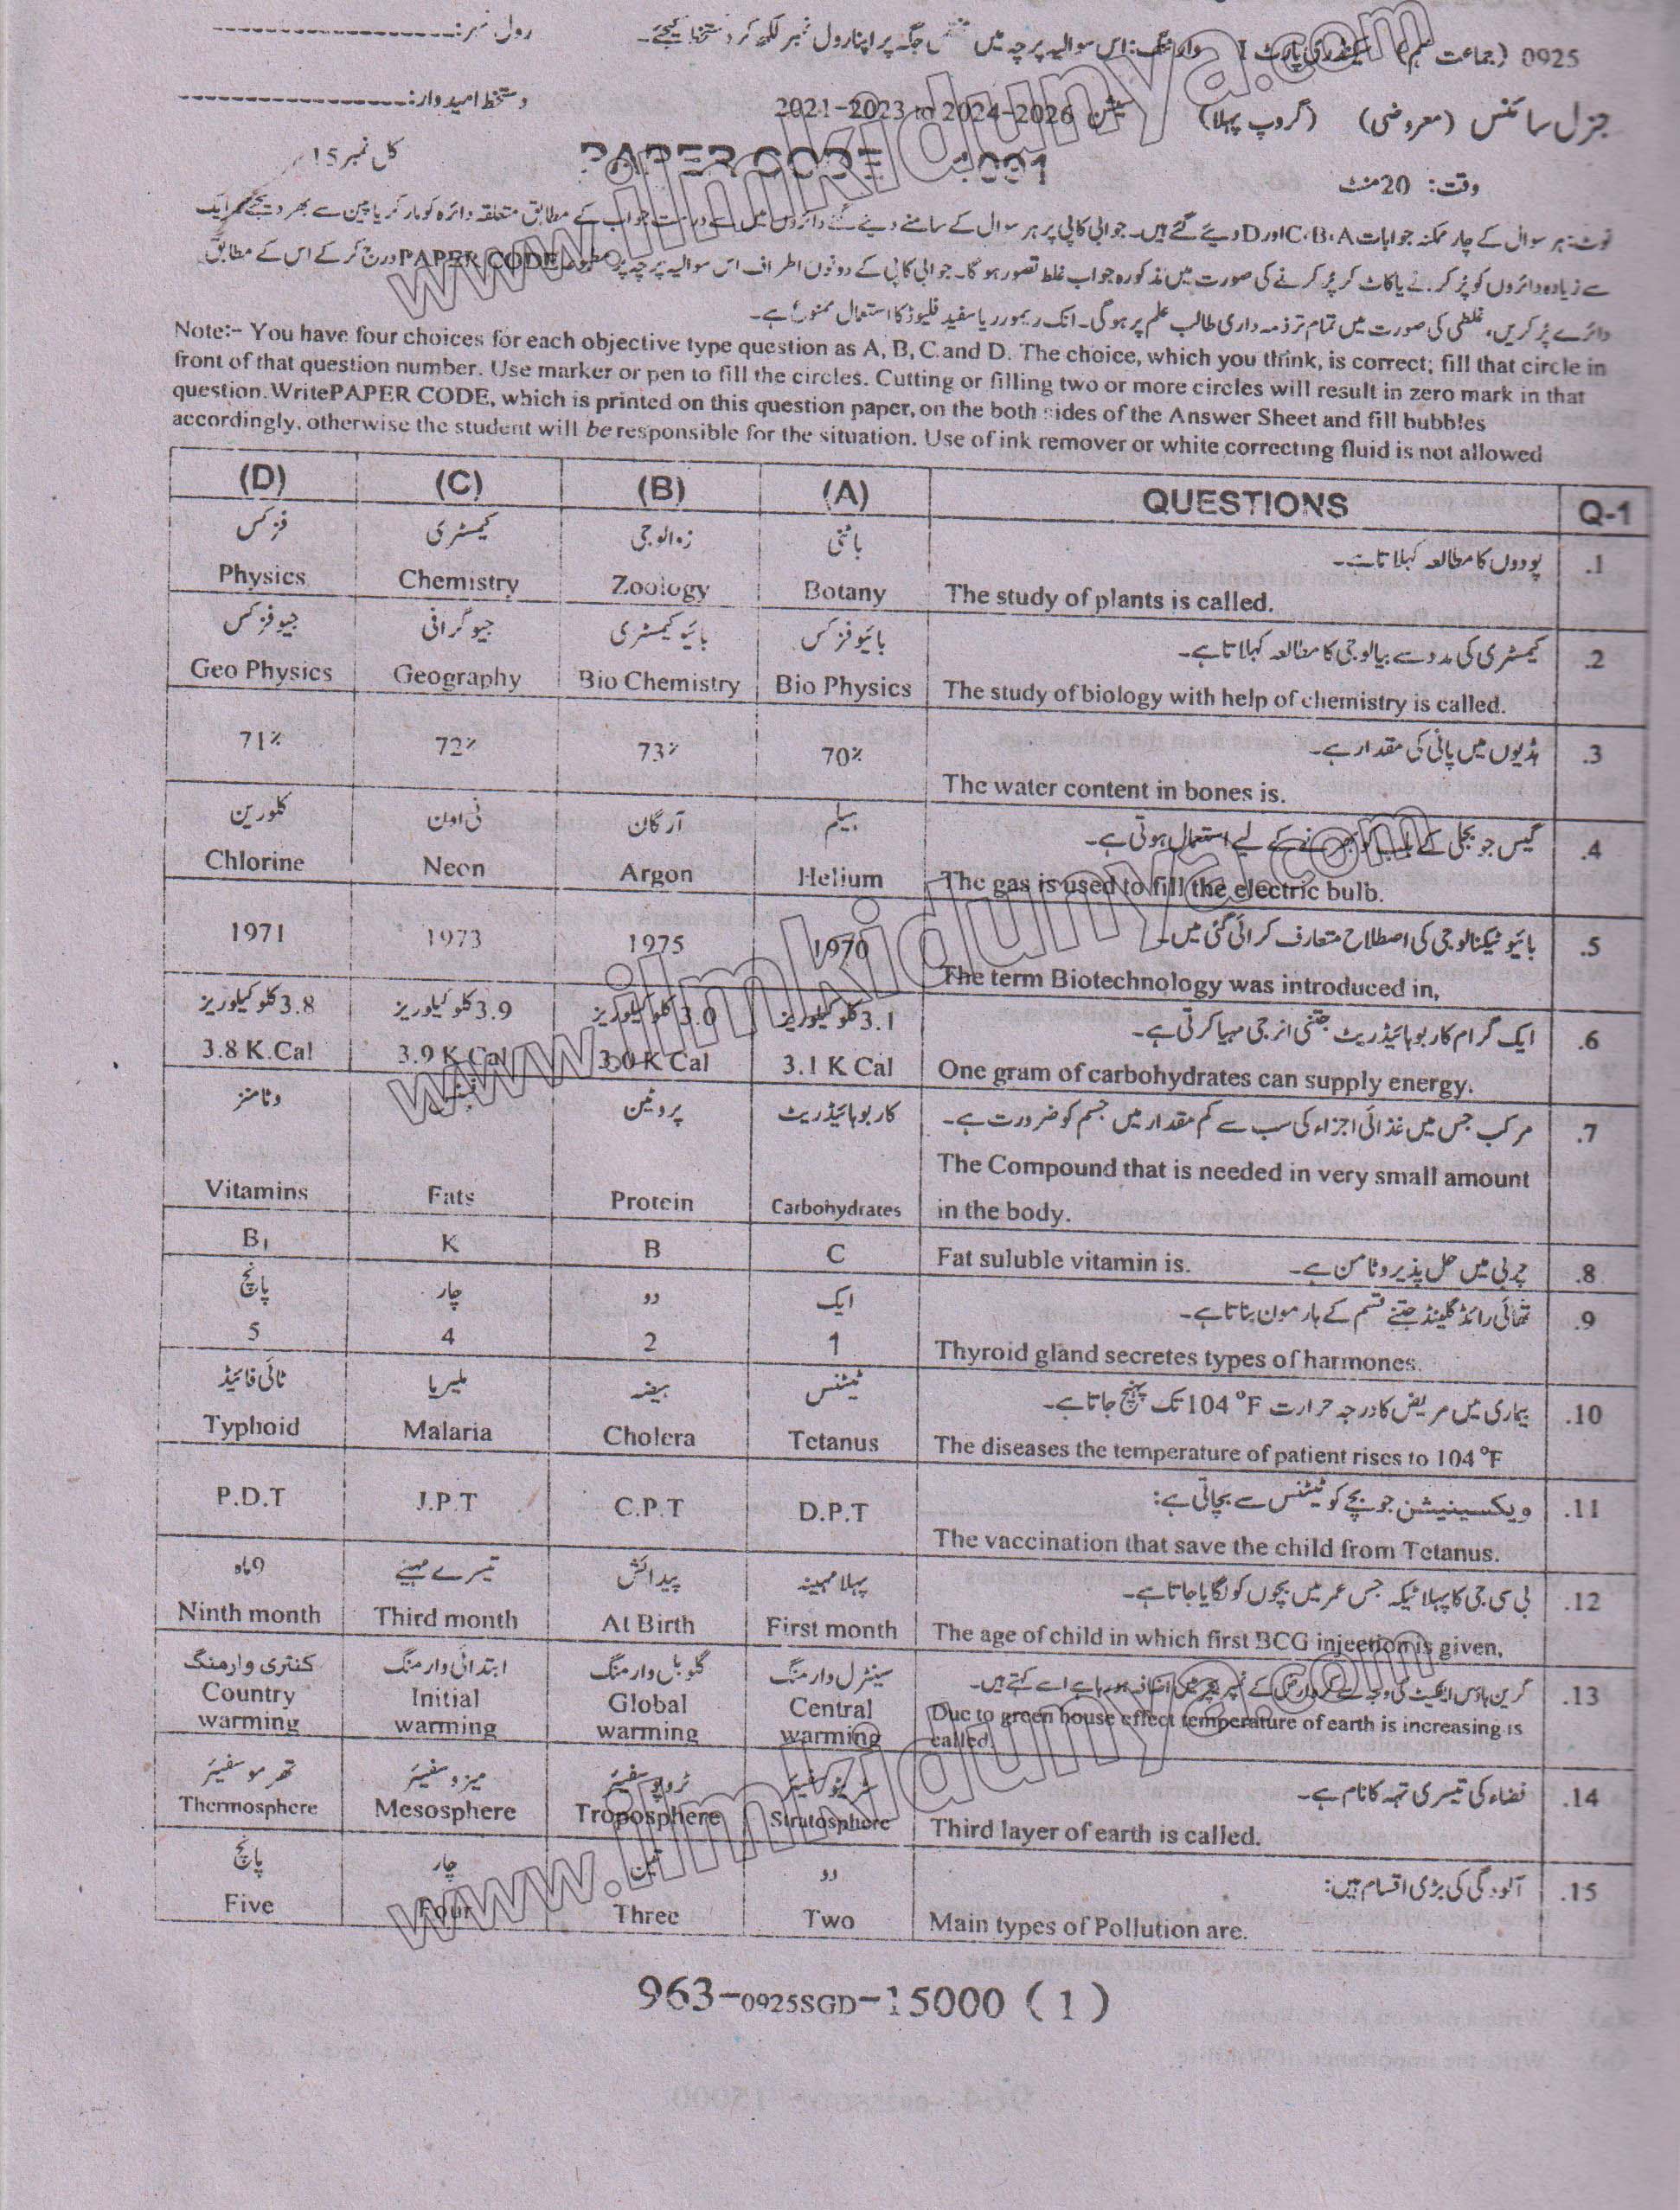 0925 (جماعت نہم) سیکنڈری پارٹ I وارننگ: اس سوالیہ پرچہ میں مختص جگہ پر اپنا رول نمبر لکھ کر دستخط کیجئے۔ رول نمبر:
جنرل سائنس (معروضی) (گروپ پہلا) سیشن 2021-2023 to 2024-2026 دستخط امیدوار:
وقت: 20 منٹ PAPER CODE کل نمبر 15
نوٹ: ہر سوال کے چار ممکنہ جوابات C،B،A اور D دیئے گئے ہیں۔ جوابی کاپی پر ہر سوال کے سامنے دیئے گئے دائروں میں سے درست جواب کے مطابق متعلقہ دائرہ کو مارکر یا پین سے بھر دیجئے۔ ایک
سے زیادہ دائروں کو پُر کرنے یا کاٹ کر پُر کرنے کی صورت میں مذکورہ جواب غلط تصور ہو گا۔ جوابی کاپی کے دونوں اطراف اس سوالیہ پرچہ پر مطبوعہ PAPER CODE درج کر کے اس کے مطابق
دائرے پُر کریں، غلطی کی صورت میں تمام تر ذمہ داری طالب علم پر ہو گی۔ انک ریمورر یا سفید فلیوڈ کا استعمال ممنوع ہے۔
Note:- You have four choices for each objective type question as A, B, C and D. The choice, which you think, is correct; fill that circle in
front of that question number. Use marker or pen to fill the circles. Cutting or filling two or more circles will result in zero mark in that
question.WritePAPER CODE, which is printed on this question paper, on the both sides of the Answer Sheet and fill bubbles
accordingly, otherwise the student will be responsible for the situation. Use of ink remover or white correcting fluid is not allowed
(D) (C) (B) (A) QUESTIONS Q-1
فزکس کیمسٹری زوالوجی باٹنی پودوں کا مطالعہ کہلاتا ہے۔ .1
Physics Chemistry Zoology Botany The study of plants is called.
جیوفزکس جیوگرافی بائیو کیمسٹری بائیوفزکس کیمسٹری کی مدد سے بیالوجی کا مطالعہ کہلاتا ہے۔ .2
Geo Physics Geography Bio Chemistry Bio Physics The study of biology with help of chemistry is called.
71% 72% 73% 70% ہڈیوں میں پانی کی مقدار ہے۔ .3
The water content in bones is.
کلورین نی اون آرگان ہیلیم گیس جو بجلی کے بلب کو بھرنے کے لیے استعمال ہوتی ہے۔ .4
Chlorine Neon Argon Helium The gas is used to fill the electric bulb.
1971 1973 1975 1970 بائیو ٹیکنالوجی کی اصطلاح متعارف کرائی گئی میں۔ .5
The term Biotechnology was introduced in,
3.8 کلو کیلوریز 3.9 کلو کیلوریز 3.0 کلو کیلوریز 3.1 کلو کیلوریز ایک گرام کاربوہائیڈریٹ جتنی انرجی مہیا کرتی ہے۔ .6
3.8 K.Cal 3.9 K Cal 3.0 K Cal 3.1 K Cal One gram of carbohydrates can supply energy.
وٹامنز پروٹین کاربوہائیڈریٹ مرکب جس میں غذائی اجزاء کی سب سے کم مقدار میں جسم کو ضرورت ہے۔ .7
Vitamins Fats Protein Carbohydrates The Compound that is needed in very small amount
in the body.
B₁ K B C Fat suluble vitamin is. چربی میں حل پذیر وٹامن ہے۔ .8
پانچ چار دو ایک تھائی رائڈ گلینڈ جتنے قسم کے ہارمون بناتا ہے۔ .9
5 4 2 1 Thyroid gland secretes types of harmones.
ٹائی فائیڈ ملیریا ہیضہ ٹیٹنس بیماری میں مریض کا درجہ حرارت 104 °F تک پہنچ جاتا ہے۔ .10
Typhoid Malaria Cholera Tetanus The diseases the temperature of patient rises to 104 °F
P.D.T J.P.T C.P.T D.P.T ویکسینیشن جو بچے کو ٹیٹنس سے بچاتی ہے: .11
The vaccination that save the child from Tetanus.
9ماہ تیسرے مہینے پیدائش پہلا مہینہ بی سی جی کا پہلا ٹیکہ جس عمر میں بچوں کو لگایا جاتا ہے۔ .12
Ninth month Third month At Birth First month The age of child in which first BCG injection is given,
کنٹری وارمنگ ابتدائی وارمنگ گلوبل وارمنگ سینٹرل وارمنگ گرین ہاؤس ایفیکٹ کی وجہ سے کرہ ارض کے ٹمپریچر میں اضافہ ہو رہا ہے اسے کہتے ہیں۔ .13
Country warming Initial warming Global warming Central warming Due to green house effect temperature of earth is increasing is
called.
تھرموسفیئر میزوسفیئر ٹروپوسفیئر سٹریٹوسفیئر فضاء کی تیسری تہہ کا نام ہے۔ .14
Thermosphere Mesosphere Troposphere Stratosphere Third layer of earth is called.
پانچ چار تین دو آلودگی کی بڑی اقسام ہیں: .15
Five Four Three Two Main types of Pollution are.
963-0925SGD-15000 (1)
www.ilmkidunya.com
www.ilmkidunya.com
www.ilmkidunya.com